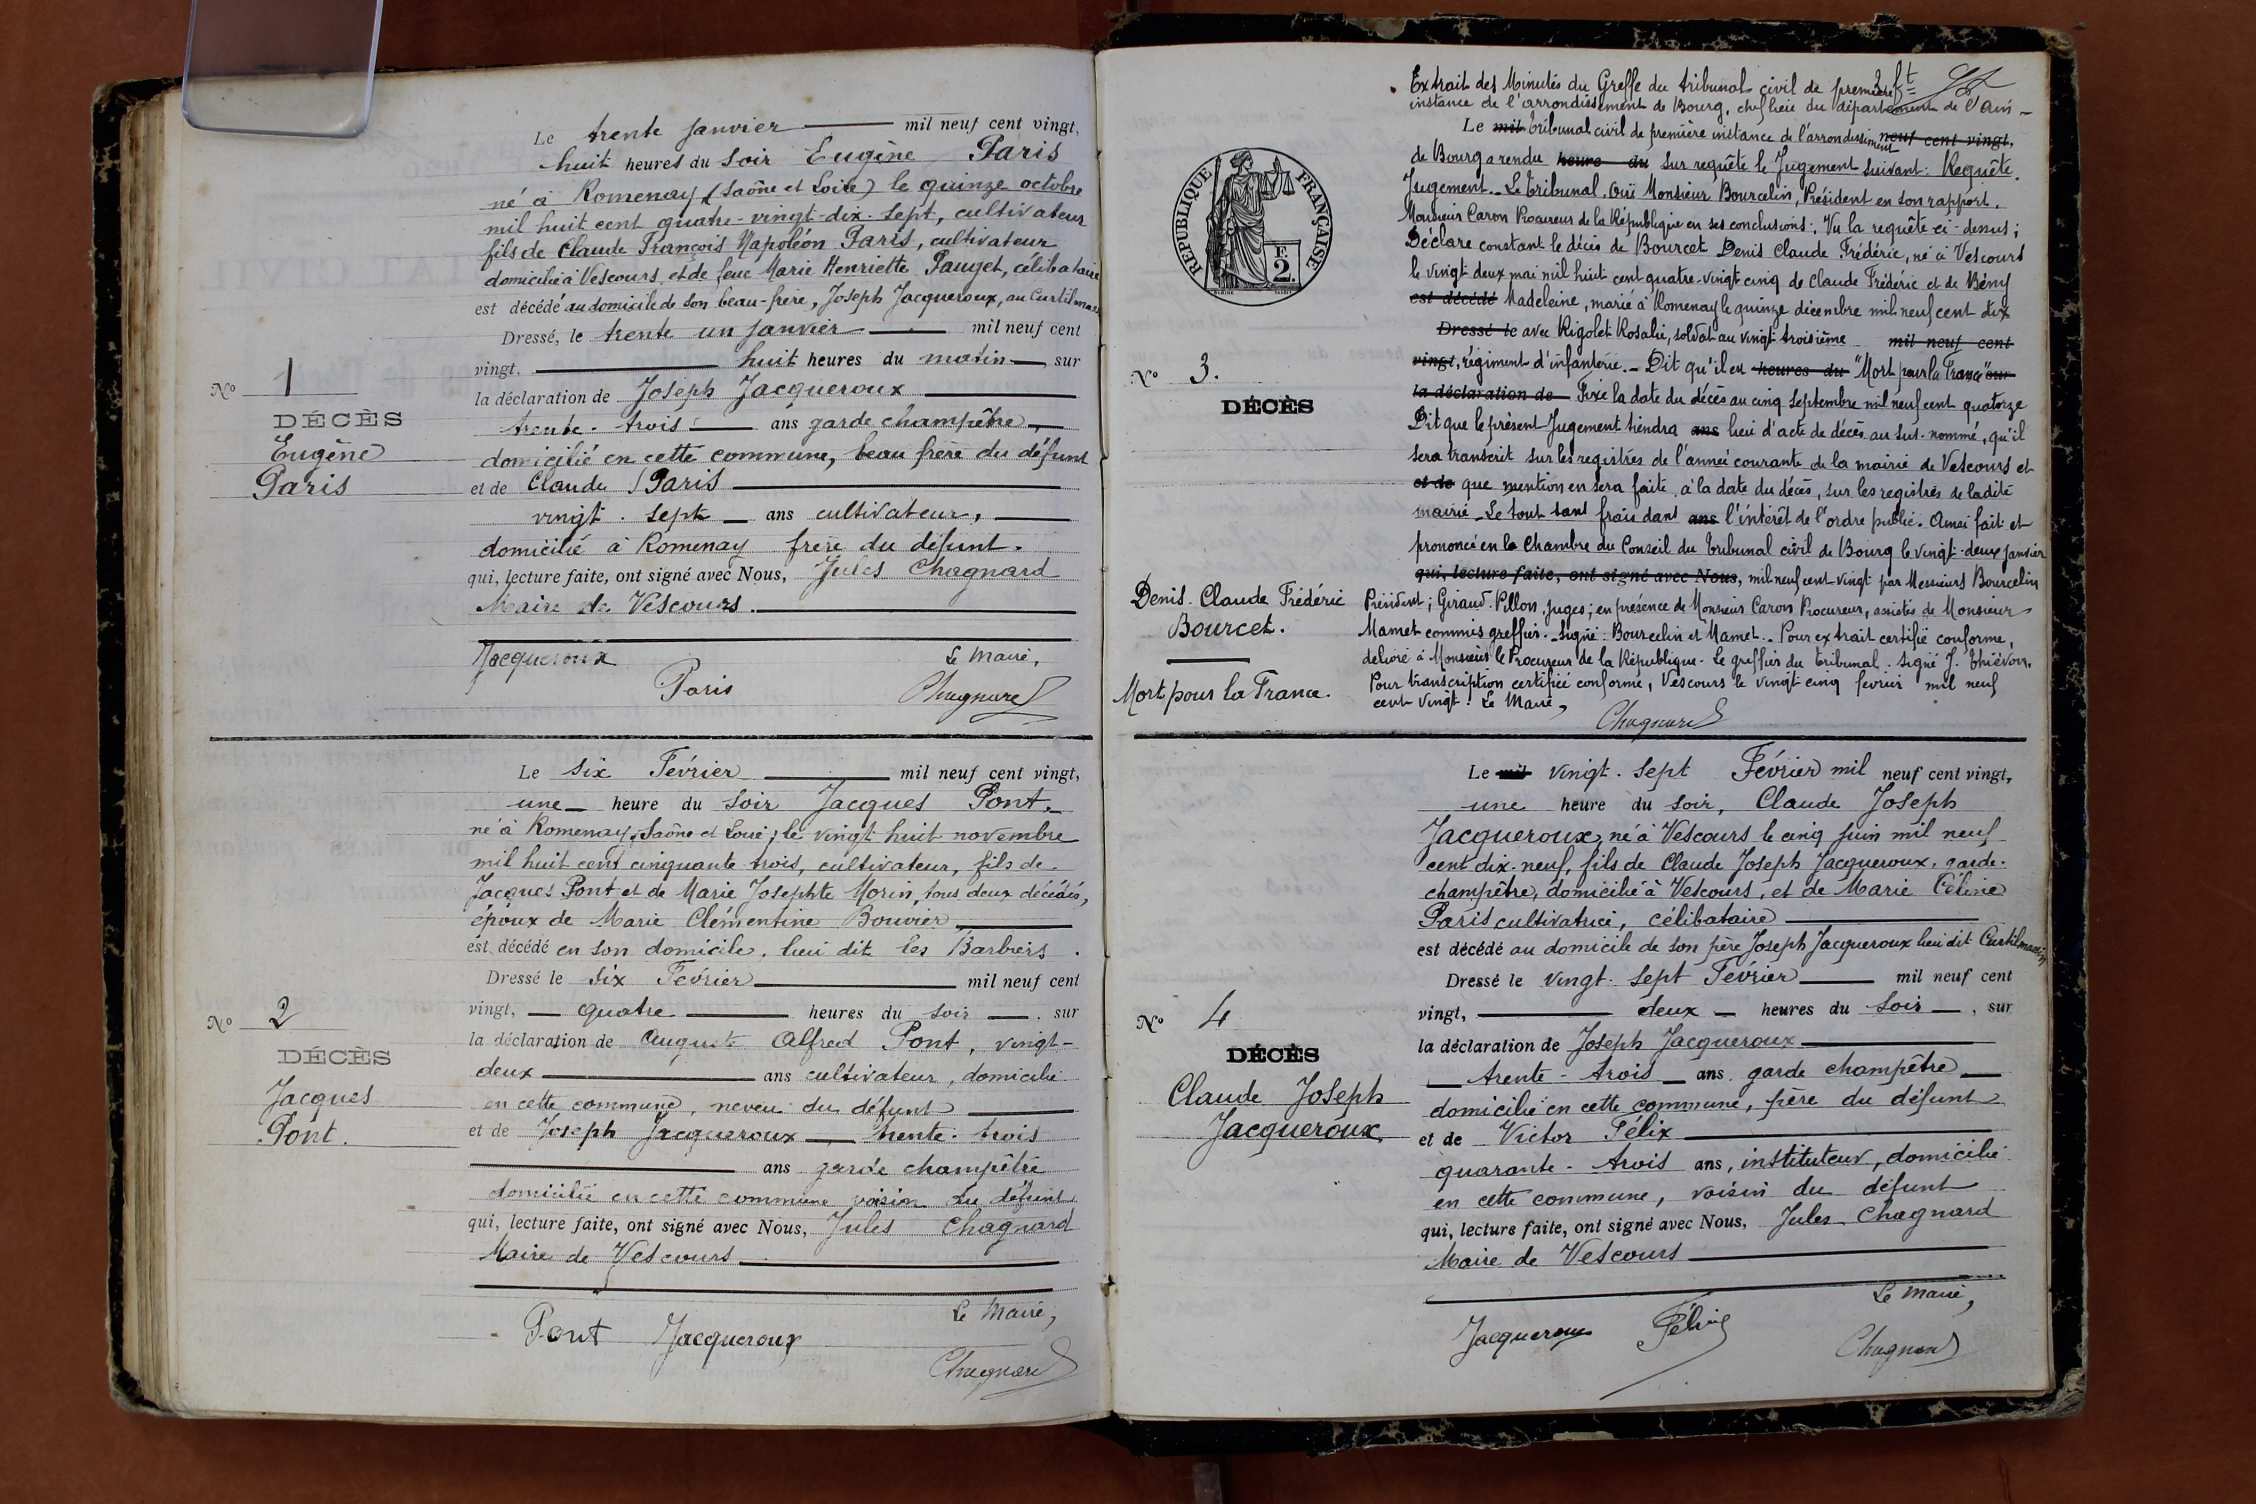 Le trente janvier mil neuf cent vingt,
huit heures du soir Eugène Paris
né à Romenay (Saône et Loire) le quinze octobre
mil huit cent quatre-vingt-dix-sept, cultivateur
fils de Claude François Napoléon Paris, cultivateur
domicilié à Vescours et de feue Marie Henriette Pauget, célibataire
est décédé au domicile de son beau-frère, Joseph Jacqueroux, au Curtilmassin
Dressé, le trente un janvier mil neuf cent
vingt, huit heures du matin, sur
la déclaration de Joseph Jacqueroux
trente-trois ans garde champêtre,
domicilié en cette commune, beau frère du défunt
et de Claude Paris
vingt-sept ans cultivateur,
domicilié à Romenay frère du défunt.
qui, lecture faite, ont signé avec Nous, Jules Chagnard
Maire de Vescours.
Nº 1
DÉCÈS
Eugène
Paris
Jacqueroux
Le Maire,
Paris
Chagnard
Le six Février mil neuf cent vingt,
une heure du soir Jacques Pont
né à Romenay, Saône et Loire, le vingt huit novembre
mil huit cent cinquante trois, cultivateur, fils de
Jacques Pont et de Marie Josephte Morin, tous deux décédés,
époux de Marie Clémentine Bouvier
est décédé en son domicile, lieu dit les Barbiers.
Dressé le six Février mil neuf cent
vingt, quatre heures du soir, sur
la déclaration de Auguste Alfred Pont, vingt-
deux ans cultivateur, domicilié
en cette commune, neveu du défunt
et de Joseph Jacqueroux trente-trois
ans garde champêtre
domicilié en cette commune voisin du défunt
qui, lecture faite, ont signé avec Nous, Jules Chagnard
Maire de Vescours
Nº 2
DÉCÈS
Jacques
Pont.
Le Maire,
Pont Jacqueroux
Chagnard
Extrait des Minutes du Greffe du tribunal civil de première
instance de l'arrondissement de Bourg, chef lieu du département de l'Ain
Le mil tribunal civil de première instance de l'arrondissement neuf cent vingt,
de Bourg a rendu heure du sur requête le Jugement suivant: Requête.
Jugement.- Le tribunal. Ouï Monsieur Bourcelin, Président en son rapport.
Monsieur Caron Procureur de la République en ses conclusions: Vu la requête ci-dessus;
Déclare constant le décès de Bourcet Denis Claude Frédéric, né à Vescours
le vingt deux mai mil huit cent quatre-vingt cinq de Claude Frédéric et de Bény
est décédé Madeleine, marié à Romenay le quinze décembre mil neuf cent dix
Dressé le avec Rigolet Rosalie, soldat au vingt troisième mil neuf cent
vingt, régiment d'infanterie.- Dit qu'il est heures du "Mort pour la France" sur
la déclaration de Fixe la date du décès au cinq Septembre mil neuf cent quatorze
Dit que le présent Jugement tiendra ans lieu d'acte de décès au sus-nommé, qu'il
sera transcrit sur les registres de l'année courante de la mairie de Vescours et
et de que mention en sera faite, à la date du décès, sur les registres de ladite
mairie. Le tout sans frais dans ans l'intérêt de l'ordre public. Ainsi fait et
prononcé en la Chambre du Conseil du tribunal civil de Bourg le vingt-deux janvier
qui, lecture faite, ont signé avec Nous, mil neuf cent vingt par Messieurs Bourcelin
Président; Giraud-Pillon juges; en présence de Monsieur Caron Procureur, assistés de Monsieur
Mamet commis greffier.- Signé: Bourcelin et Mamet.- Pour extrait certifié conforme,
délivré à Monsieur le Procureur de la République. Le greffier du tribunal. Signé J. Thiévon.
Pour transcription certifiée conforme, Vescours le vingt cinq février mil neuf
cent vingt. Le Maire,
Chagnard
RÉPUBLIQUE FRANÇAISE
F.
2
Nº 3.
DÉCÈS
Denis Claude Frédéric
Bourcet.
Mort pour la France.
Le mil vingt-sept Février mil neuf cent vingt,
une heure du soir, Claude Joseph
Jacqueroux, né à Vescours le cinq juin mil neuf
cent dix-neuf, fils de Claude Joseph Jacqueroux, garde-
champêtre, domicilié à Vescours, et de Marie Céline
Paris cultivatrice, célibataire
est décédé au domicile de son père Joseph Jacqueroux lieu dit Curtilmassin
Dressé le vingt-sept Février mil neuf cent
vingt, deux heures du soir, sur
la déclaration de Joseph Jacqueroux
trente-trois ans garde champêtre
domicilié en cette commune, père du défunt
et de Victor Félix
quarante-trois ans, instituteur, domicilié
en cette commune, voisin du défunt
qui, lecture faite, ont signé avec Nous, Jules Chagnard
Maire de Vescours
Nº 4
DÉCÈS
Claude Joseph
Jacqueroux.
Le Maire,
Jacqueroux Félix
Chagnard